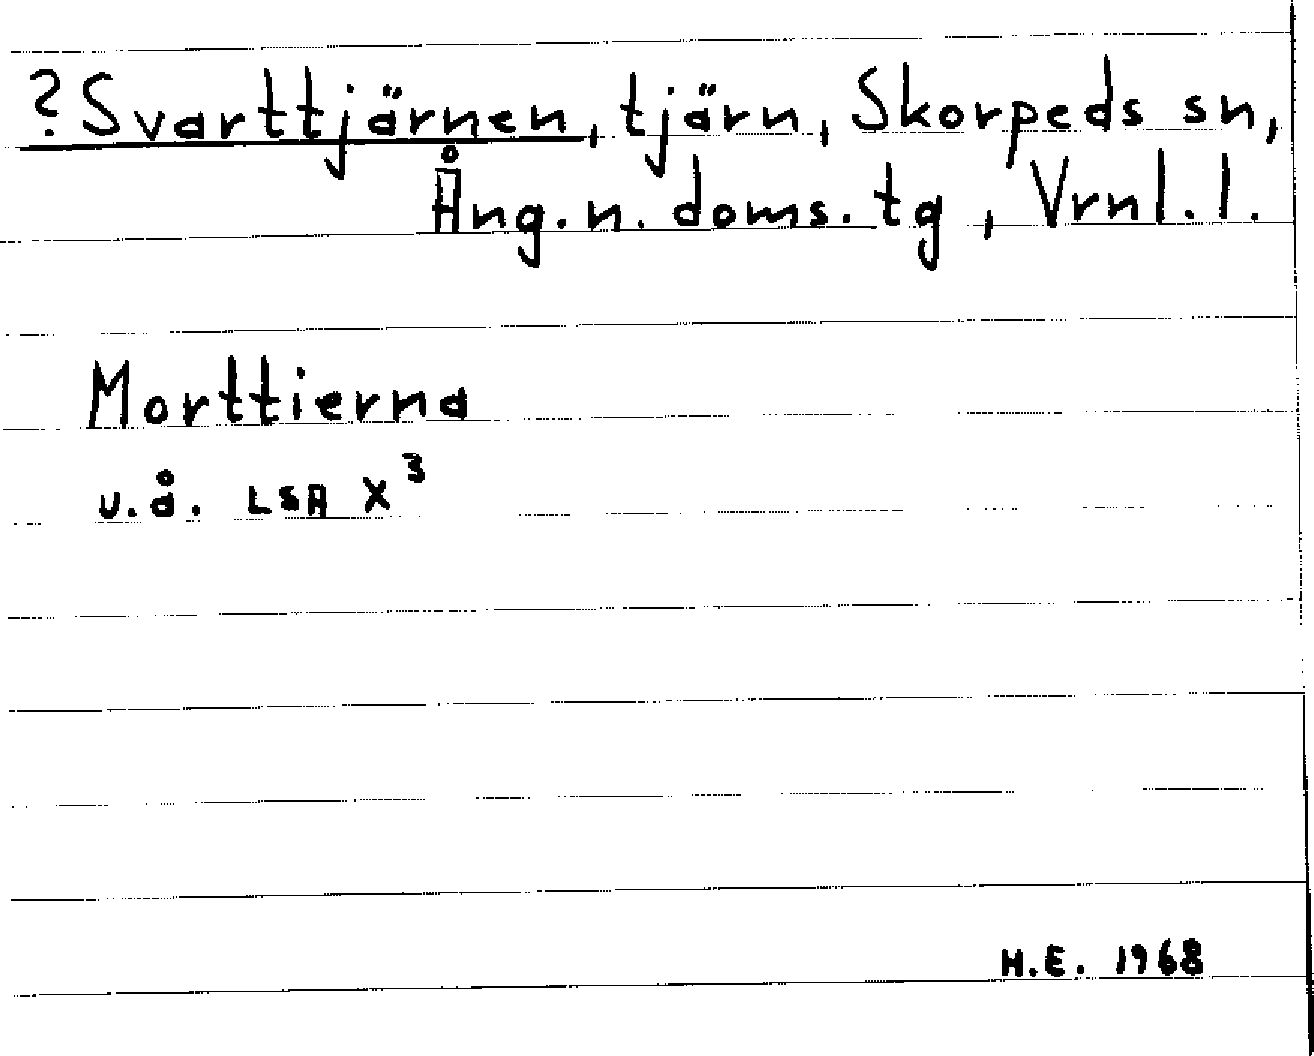 ?Svarttjärnen, tjärn, Skorpeds sn,
Ång.n. doms.tg, Vrnl.l.
Morttierna
u.å. LSA X³
H.E. 1968